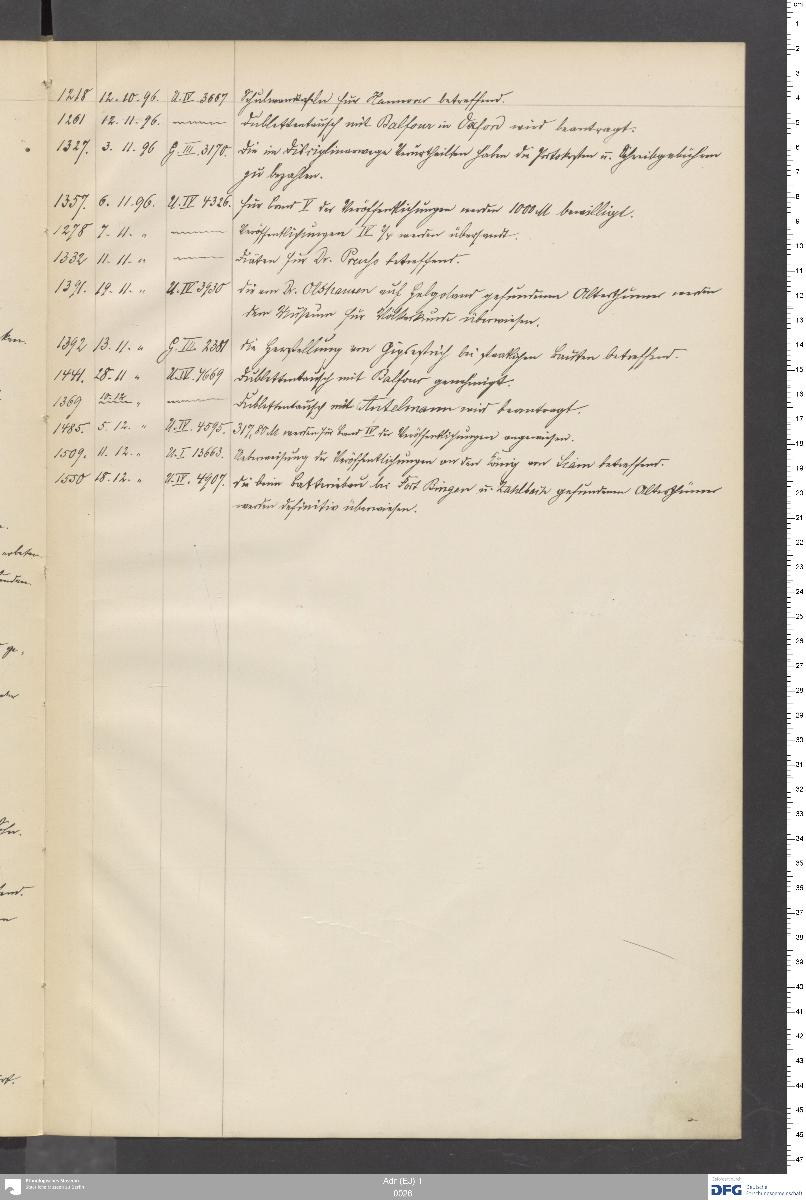 1218 12.10.96. U.IV. 3667 Schulwandtafeln für Hannover betreffend.
1261 12.11.96. Dublettentausch mit Balfour in Oxford wird beantragt.
1327. 3.11.96 G.III. 3170. Die im Disciplinarwege Verurtheilten haben die Portokosten u. Schreibgebühren
zu bezahlen.
1357. 6.11.96. U.IV 4326. Für Band V der Veröffentlichungen werden 1000 M bewilligt.
1278 7.11. " Veröffentlichungen IV werden übersandt.
1332 11.11. " Diäten für Dr. betreffend.
1391. 19.11. " U.IV 3930 Die von Dr. Olshausen auf Helgoland gefundenen Alterthümer werden
dem Museum für Völkerkunde überwiesen.
1392 13.11. " G.III. 2381 Die Herstellung von Gipsestrich bei staatlichen Bauten betreffend.
1441. 28.11 " U.IV. 4669 Dublettentausch mit Balfour genehmigt.
1369 10.12. " Dublettentausch mit Antelmann wird beantragt.
1485. 5.12. " U.IV. 4595. 317,80 M werden für Band IV der Veröffentlichungen angewiesen.
1509. 11.12. " U.I 13663. Ueberweisung der Veröffentlichungen an den König von Siam betreffend.
1550 18.12. " U.IV. 4907. Die beim Batteriebau bei Fort Bingen u. Zahlbach gefundenen Alterthümer
werden definitiv überwiesen.
Ethnologisches Museum
Staatliche Museen zu Berlin
Adr (EJ) 1
0026
Gefördert durch
DFG Deutsche
Forschungsgemeinschaft